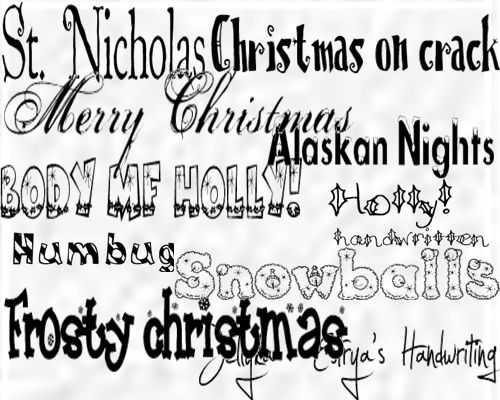 St. Nicholas Christmas on crack
Merry Christmas
Alaskan Nights
BODY MF HOLLY!
Holly!
handwritten
Humbug
Snowballs
Frosty christmas
Handwriting